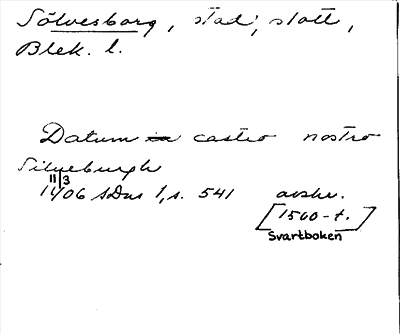 Sölvesborg, stad, slott,
Blek. l.
Datum in castro nostro
Silueburgh
11/3
1406 SDns 1, s. 541 avskr.
[1500-t.]
Svartboken